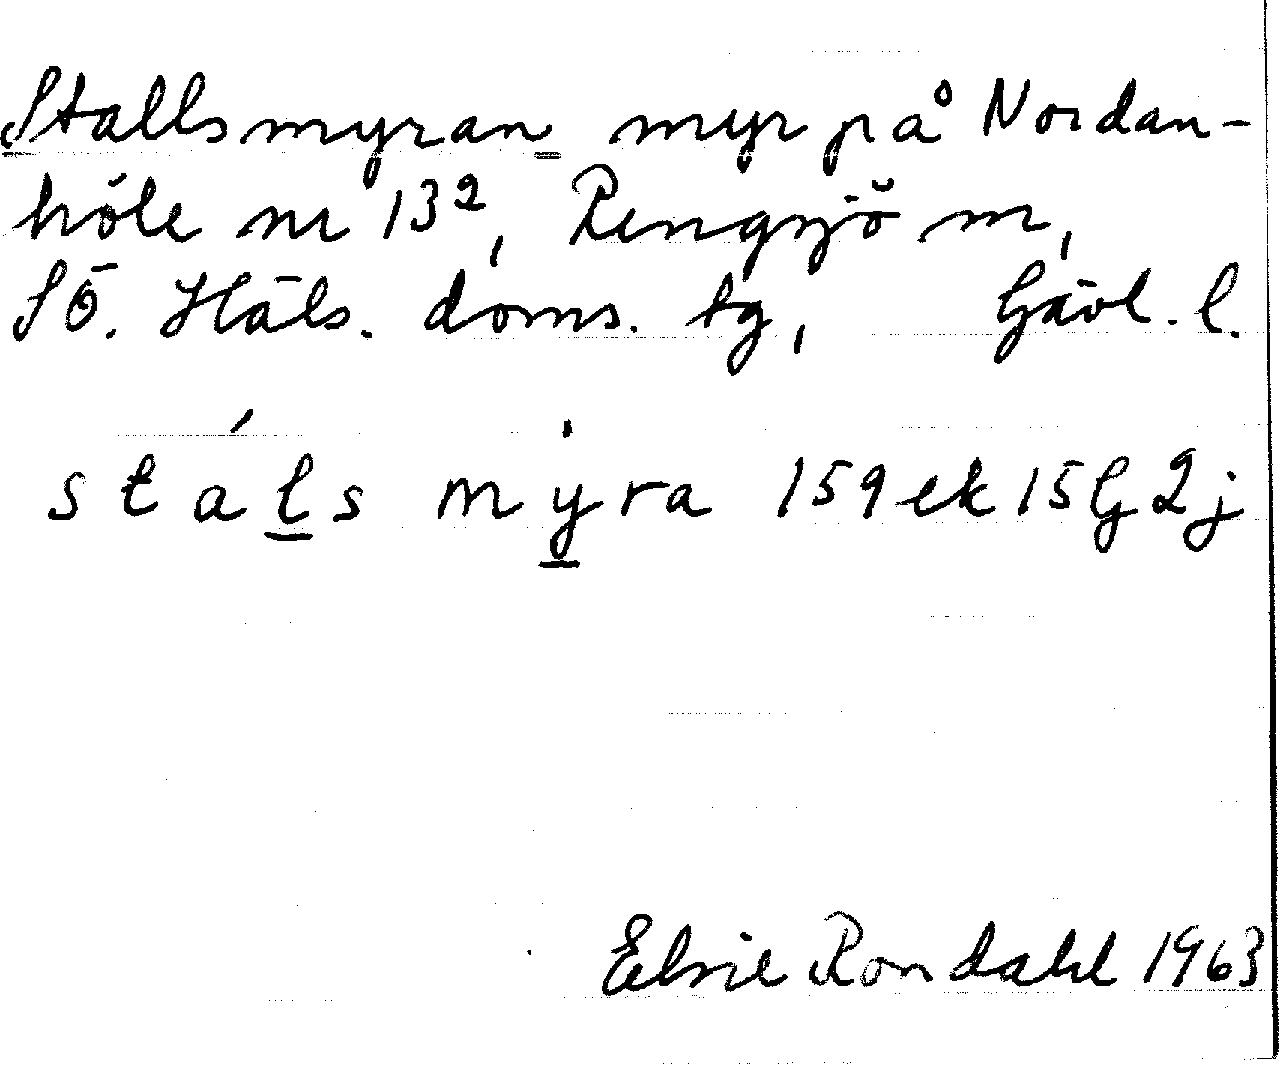 Stallsmyran myr på Nordan-
höle nr 13², Rengsjö sn,
SÖ. Häls. doms. tg, Gävl. l.
stáls mýra 159ek15G2j
Elsie Rondahl 1963